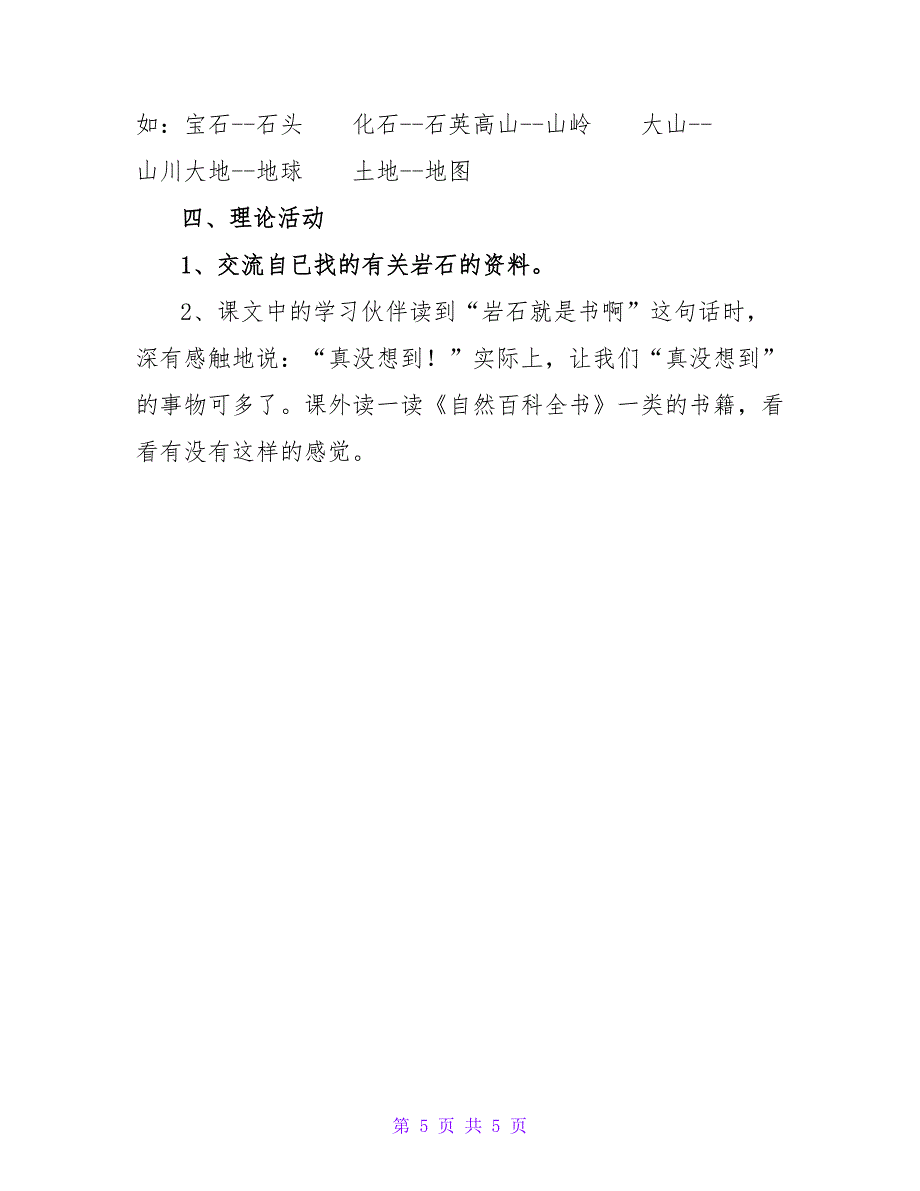 如：宝石--石头　　化石--石英高山--山岭　　大山--
山川大地--地球　　土地--地图
四、理论活动
1、交流自已找的有关岩石的资料。
2、课文中的学习伙伴读到“岩石就是书啊”这句话时，
深有感触地说：“真没想到！”实际上，让我们“真没想到”
的事物可多了。课外读一读《自然百科全书》一类的书籍，看
看有没有这样的感觉。
第 5 页 共 5 页